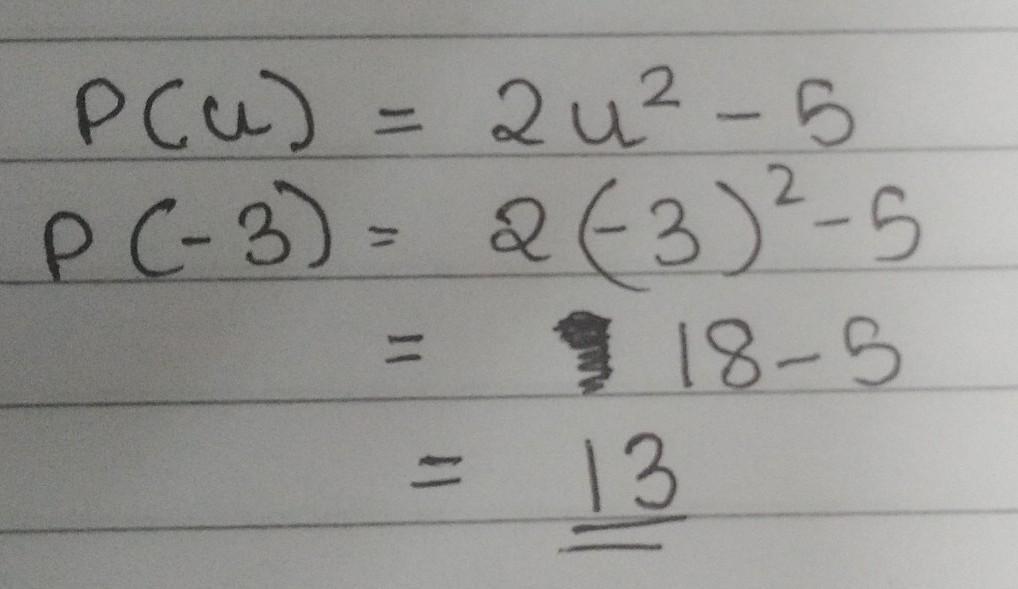 P(u) = 2u² - 5
P(-3) = 2(-3)² - 5
= 18 - 5
= 13